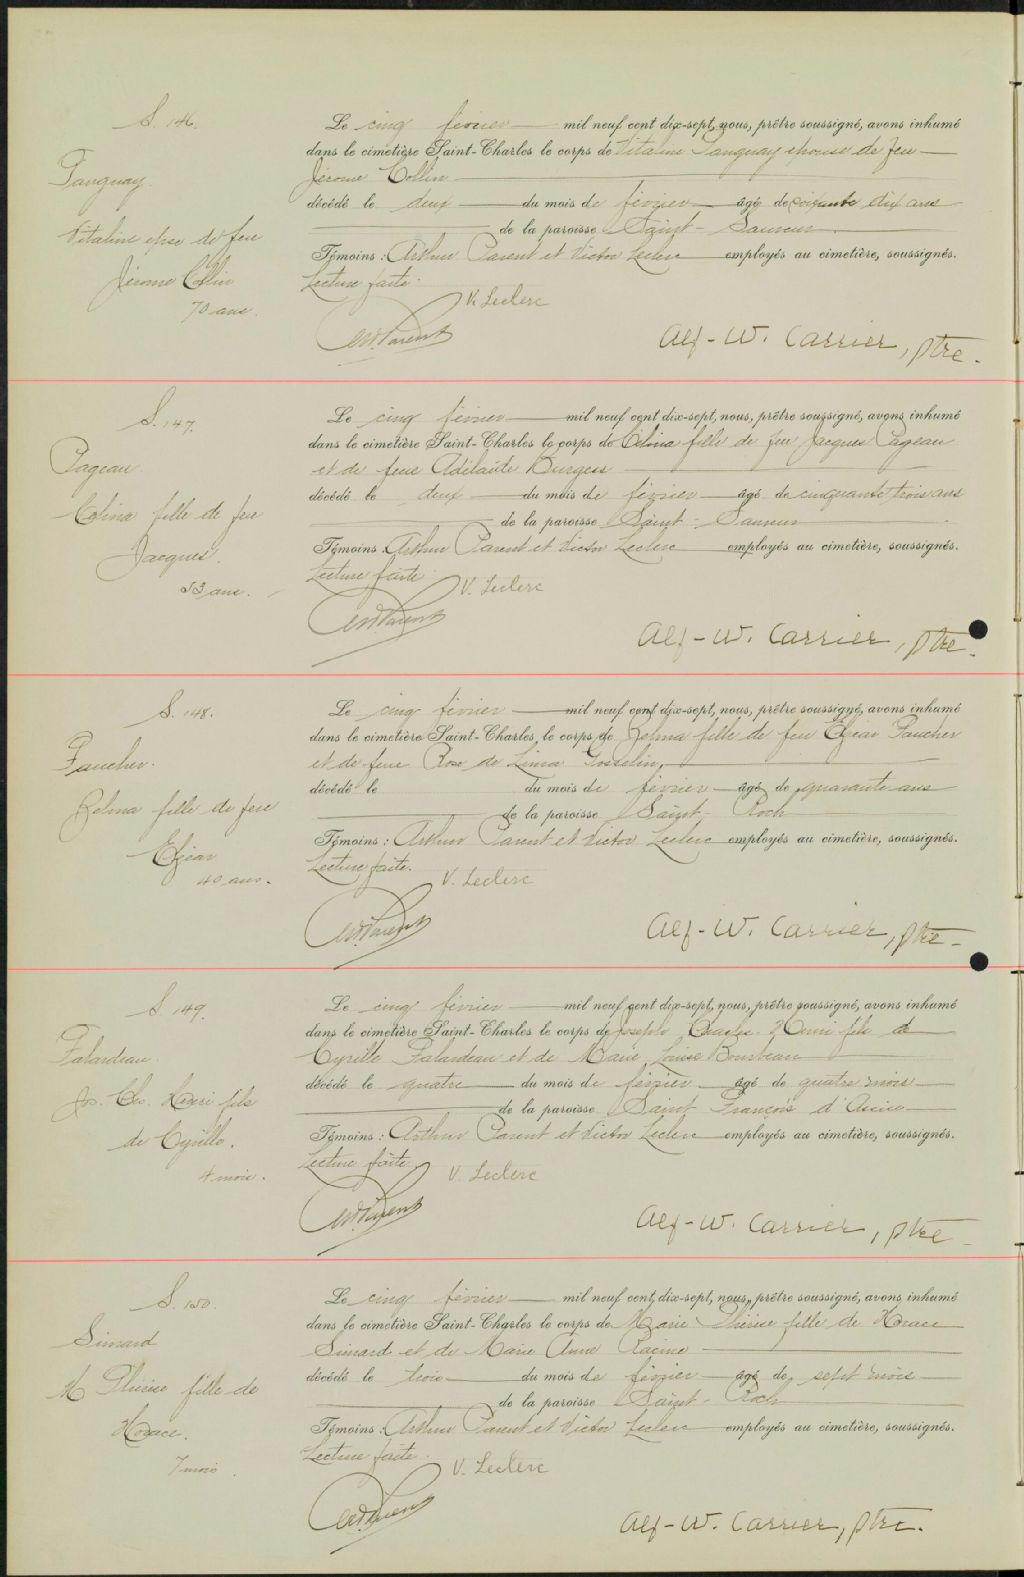 S. 146.
Tanguay.
Vitaline épse de feu
Jérome Collin
70 ans.
Le cinq février mil neuf cent dix-sept, nous, prêtre soussigné, avons inhumé
dans le cimetière Saint-Charles le corps de Vitaline Tanguay épouse de feu
Jérome Collin
décédé le deux du mois de février âgé de soixante dix ans
de la paroisse Saint-Sauveur.
Témoins : Arthur Parent et Victor Leclerc employés au cimetière, soussignés.
Lecture faite.
V. Leclerc
Parent
Alf-W. Carrier, ptre.
S. 147.
Pageau.
Célina fille de feu
Jacques.
53 ans.
Le cinq février mil neuf cent dix-sept, nous, prêtre soussigné, avons inhumé
dans le cimetière Saint-Charles le corps de Célina fille de feu Jacques Pageau
et de feue Adélaïde Burgess
décédé le deux du mois de février âgé de cinquante trois ans
de la paroisse Saint-Sauveur
Témoins : Arthur Parent et Victor Leclerc employés au cimetière, soussignés.
Lecture faite.
V. Leclerc
Parent
Alf-W. Carrier, ptre.
S. 148.
Faucher.
Zelma fille de feu
Elzéar
40 ans.
Le cinq février mil neuf cent dix-sept, nous, prêtre soussigné, avons inhumé
dans le cimetière Saint-Charles, le corps de Zelma fille de feu Elzéar Faucher
et de feue Rose de Lima Gosselin,
décédé le du mois de février âgé de quarante ans
de la paroisse Saint-Roch
Témoins : Arthur Parent et Victor Leclerc employés au cimetière, soussignés.
Lecture faite.
V. Leclerc
Parent
Alf-W. Carrier, ptre
S. 149.
Falardeau.
Jos. Chs. Henri fils
de Cyrille.
4 mois.
Le cinq février mil neuf cent dix-sept, nous, prêtre soussigné, avons inhumé
dans le cimetière Saint-Charles le corps de Joseph Charles Henri fils de
Cyrille Falardeau et de Marie Louise Bourbeau
décédé le quatre du mois de février âgé de quatre mois
de la paroisse Saint François d'Assise
Témoins : Arthur Parent et Victor Leclerc employés au cimetière, soussignés.
Lecture faite
V. Leclerc
Parent
Alf-W. Carrier, ptre
S. 150.
Simard
M Thérèse fille de
Horace.
7 mois.
Le cinq février mil neuf cent dix-sept, nous, prêtre soussigné, avons inhumé
dans le cimetière Saint-Charles le corps de Marie Thérèse fille de Horace
Simard et de Marie Anne Racine
décédé le trois du mois de février âgé de sept mois
de la paroisse Saint-Roch
Témoins : Arthur Parent et Victor Leclerc employés au cimetière, soussignés.
Lecture faite.
V. Leclerc
Parent
Alf-W. Carrier, ptre.